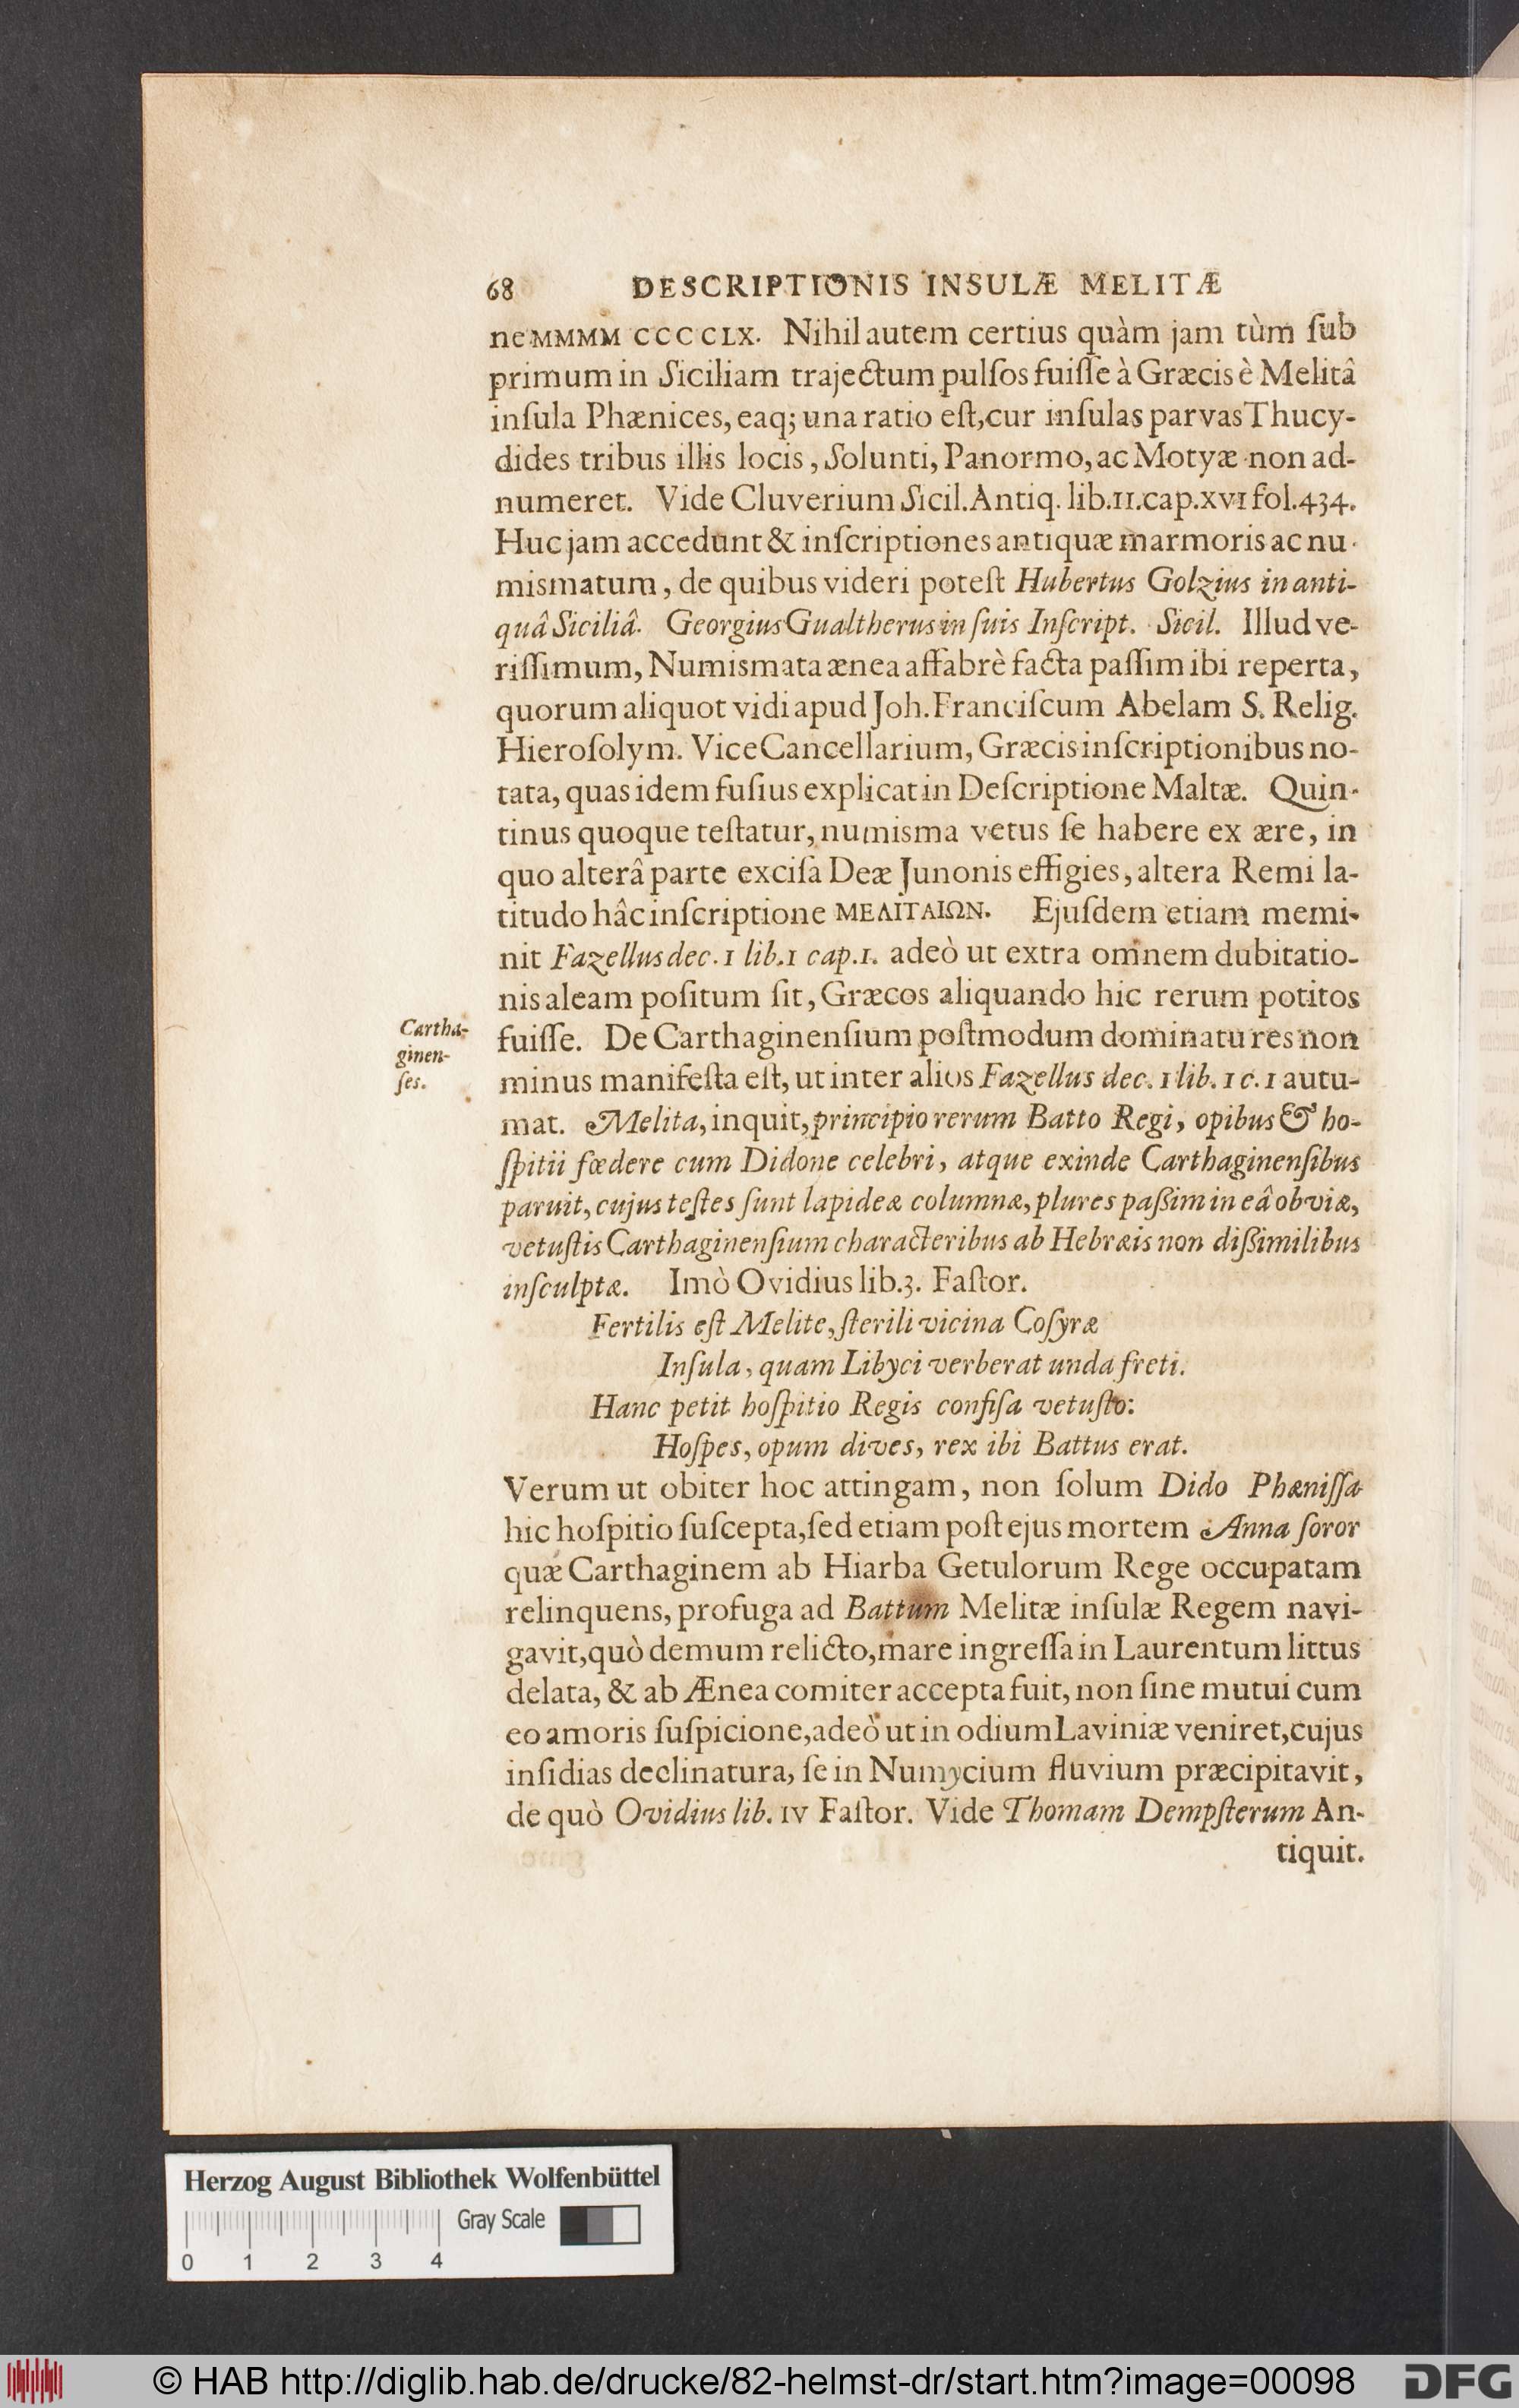 68 DESCRIPTIONIS INSULÆ MELITÆ
ne MMMM CCCCLX. Nihil autem certius quàm jam tùm ſub
primum in Siciliam trajectum pulſos fuiſſe à Græcis è Melitâ
inſula Phænices, eaq; una ratio eſt, cur inſulas parvas Thucy-
dides tribus illis locis, Solunti, Panormo, ac Motyæ non ad-
numeret. Vide Cluverium Sicil. Antiq. lib. II. cap. XVI fol. 434.
Huc jam accedunt & inſcriptiones antiquæ marmoris ac nu-
mismatum, de quibus videri poteſt Hubertus Golzius in anti-
quâ Siciliâ. Georgius Gualtherus in ſuis Inſcript. Sicil. Illud ve-
riſſimum, Numismata ænea affabrè facta paſſim ibi reperta,
quorum aliquot vidi apud Joh. Franciſcum Abelam S. Relig.
Hieroſolym. ViceCancellarium, Græcis inſcriptionibus no-
tata, quas idem fuſius explicat in Deſcriptione Maltæ. Quin-
tinus quoque teſtatur, numisma vetus ſe habere ex ære, in
quo alterâ parte exciſa Deæ Junonis effigies, altera Remi la-
titudo hâc inſcriptione ΜΕΛΙΤΑΙΩΝ. Ejuſdem etiam memi-
nit Fazellus dec. 1 lib. 1 cap. 1. adeò ut extra omnem dubitatio-
nis aleam poſitum ſit, Græcos aliquando hic rerum potitos
Cartha-
ginen-
ſes.
fuiſſe. De Carthaginenſium poſtmodum dominatu res non
minus manifeſta eſt, ut inter alios Fazellus dec. 1 lib. 1 c. 1 autu-
mat. Melita, inquit, principio rerum Batto Regi, opibus & ho-
ſpitii fœdere cum Didone celebri, atque exinde Carthaginenſibus
paruit, cujus teſtes ſunt lapideæ columnæ, plures paßim in eâ obviæ,
vetuſtis Carthaginenſium characteribus ab Hebræis non dißimilibus
inſculptæ. Imò Ovidius lib. 3. Faſtor.
Fertilis eſt Melite, ſterili vicina Coſyræ
Inſula, quam Libyci verberat unda freti.
Hanc petit hoſpitio Regis confiſa vetuſto:
Hoſpes, opum dives, rex ibi Battus erat.
Verum ut obiter hoc attingam, non ſolum Dido Phæniſſa
hic hoſpitio ſuſcepta, ſed etiam poſt ejus mortem Anna ſoror
quæ Carthaginem ab Hiarba Getulorum Rege occupatam
relinquens, profuga ad Battum Melitæ inſulæ Regem navi-
gavit, quò demum relicto, mare ingreſſa in Laurentum littus
delata, & ab Ænea comiter accepta fuit, non ſine mutui cum
eo amoris ſuſpicione, adeò ut in odium Laviniæ veniret, cujus
inſidias declinatura, ſe in Numycium fluvium præcipitavit,
de quò Ovidius lib. IV Faſtor. Vide Thomam Dempſterum An-
tiquit.
Herzog August Bibliothek Wolfenbüttel
Gray Scale
0 1 2 3 4
© HAB http://diglib.hab.de/drucke/82-helmst-dr/start.htm?image=00098
DFG